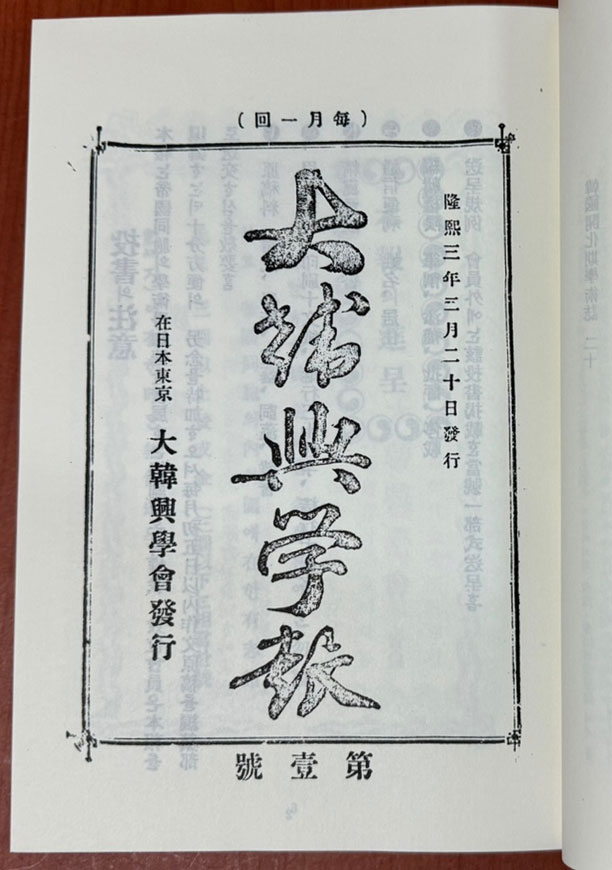 (每月一回)
隆熙三年三月二十日發行
大韓興学報
在日本東京 大韓興學會發行
第壹號